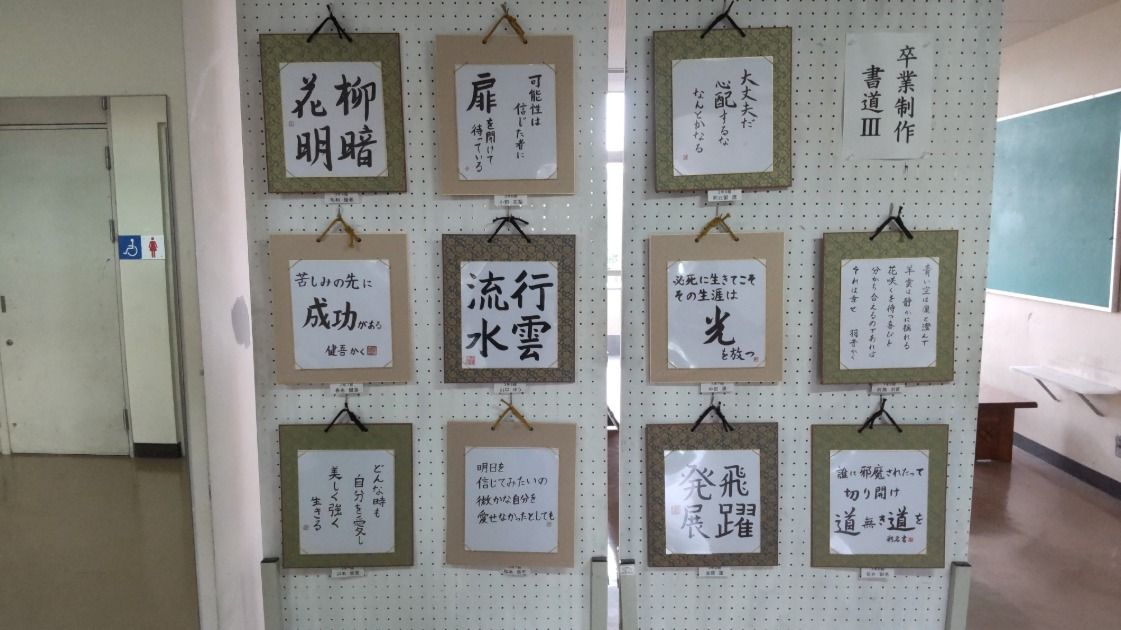 柳暗
花明
可能性は
信じた者に
扉を開けて
待っている
大丈夫だ
心配するな
なんとかなる
卒業制作
書道Ⅲ
苦しみの先に
成功がある
健吾かく
行雲
流水
必死に生きてこそ
その生涯は
光
を放つ
青い空は凛と澄んで
羊雲は静かに揺れる
花咲くを待つ喜びを
分かち合えるのであれば
それは幸せ
どんな時も
自分を愛し
美しく強く
生きる
明日を
信じてみたいの
微かな自分を
愛せなかったとしても
飛躍
発展
誰に邪魔されたって
切り開け
道無き道を